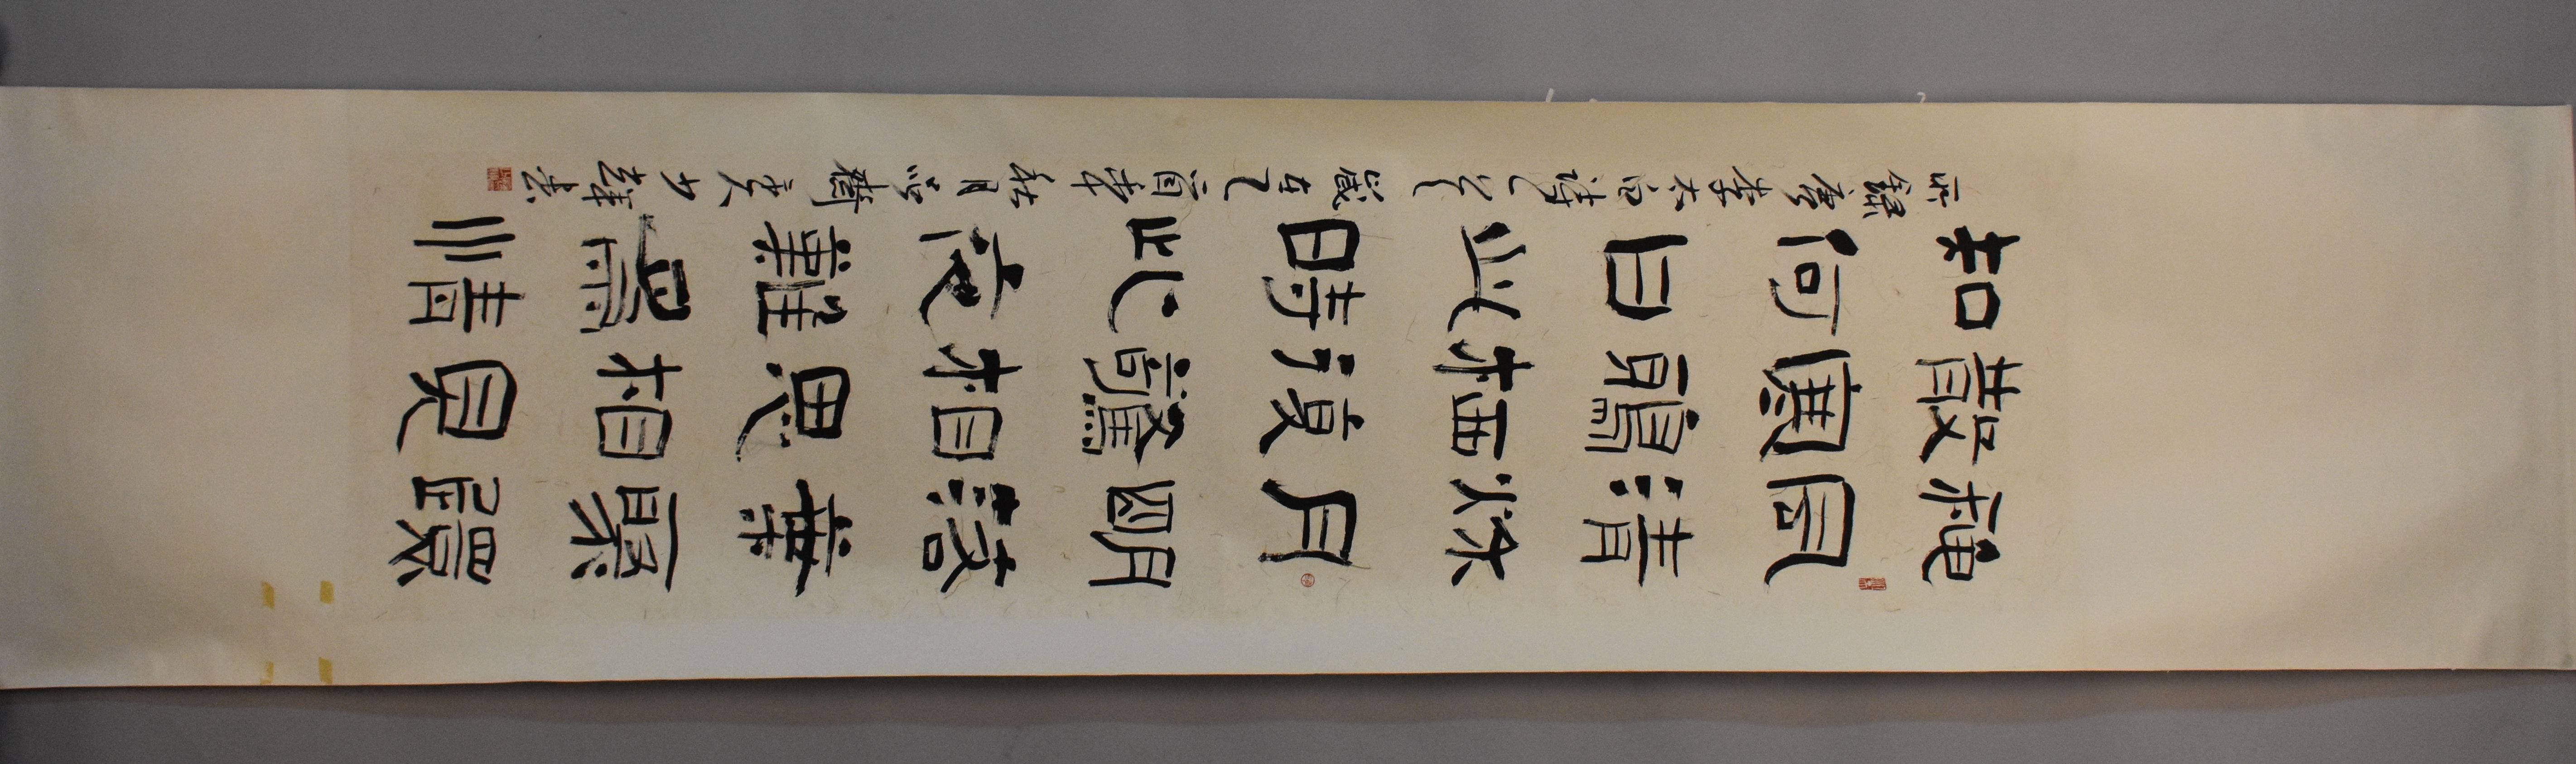 秋風清秋月明落葉聚還
散寒鴉棲復驚相思相見
知何日此時此夜難爲情
錄唐李太白詩 歲在 酉年秋月 書